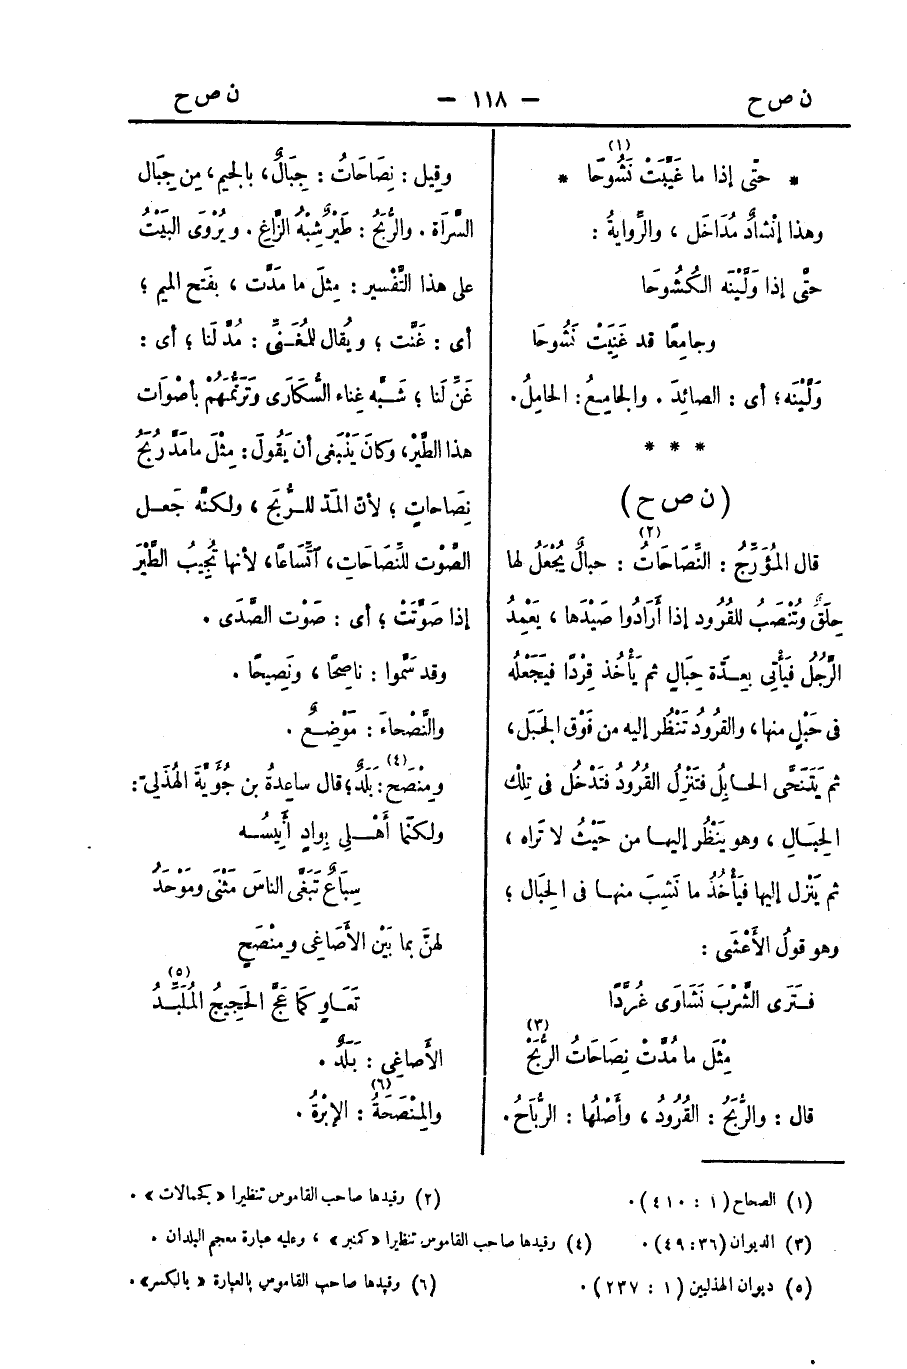 ن ص ح — ١١٨ — ن ص ح
(١)
* حتّى إذا ما غَيَّبَتْ نَشُوحًا *
وهذا إنْشادٌ مُدَاخَل ، والرِّوايةُ :
حتّى إذا وَلَّيْنَه الكُشُوحَا
وجامِعًا قد غَنِيَتْ نَشُوحَا
وَلَّيْنَه ؛ أى : الصائِدَ . والجامِعُ : الحامِلُ .
* * *
( ن ص ح )
(٢)
قال المُؤَرِّجُ : النِّصَاحَاتُ : حبالٌ يُجْعَلُ لها
حِلَقٌ وتُنْصَبُ للقُرُود إذا أَرَادُوا صَيْدَها ، يَعْمِدُ
الرَّجُلُ فيَأْتِى بِعِدَّة حِبَالٍ ثم يَأْخُذ قِرْدًا فيَجْعَلُه
فى حَبْلٍ منها ، والقُرُودُ تَنْظُر إليه من فَوْق الجَبَل ،
ثم يَتَنَحَّى الحابِلُ فتَنْزِلُ القُرُودُ فتَدْخُل فى تِلْك
الحِبَالِ ، وهو يَنْظُر إليها من حَيْثُ لا تَراه ،
ثم يَنْزِل إليها فيَأْخُذُ ما نَشِبَ منها فى الحِبَال ؛
وهو قولُ الأَعْشَى :
فَتَرَى الشَّرْبَ نَشَاوَى غُرَّدًا
(٣)
مِثْلَ ما مُدَّتْ نِصَاحَاتُ الرُّبَحْ
قال : والرُّبَحُ : القُرُودُ ، وأَصْلُها : الرُّبَاحُ .
وقِيل : نِصَاحَاتُ : جِبَالٌ ، بالجيم ، مِن جِبَال
السَّرَاة . والرُّبَحُ : طَيْرٌ شِبْهُ الزَّاغِ . ويُرْوَى البَيْتُ
على هذا التَّفْسير : مِثلَ ما مَدَّت ، بفَتح الميم ؛
أى : غَنَّت ؛ ويُقال للمُغَنِّى : مُدَّ لَنا ؛ أى :
غَنِّ لَنا ؛ شَبَّه غِناء السُّكَارَى وتَرَنُّمَهُمْ بأصْوَات
هذا الطَّيْرِ ، وكانَ يَنْبَغى أن يَقُولَ : مِثْلَ ما مَدَّ رُبَحُ
نِصَاحاتٍ ؛ لأن المَدّ للرُّبَحِ ، ولكنَّه جَعل
الصَّوْت للنِّصَاحَاتِ ، ٱتِّسَاعًا ، لأنها تُجِيبُ الطَّيْرَ
إذا صَوَّتَتْ ؛ أى : صَوْت الصَّدَى .
وقد سَمَّوا : ناصِحًا ، ونَصِيحًا .
والنَّصْحاءَ : مَوْضِعٌ .
(٤)
ومِنْصَح : بَلَدٌ ؛ قال ساعِدةُ بن جُؤَيَّةَ الهُذَلِىّ :
ولكنَّما أَهْلِى بِوادٍ أَنِيسُه
سِبَاعٌ تَبَغَّى الناسَ مَثْنَى ومَوْحَدُ
لهنَّ بما بَيْن الأَصَاغِى ومِنْصَحٍ
(٥)
تَعَاوٍ كما عَجَّ الحَجِيجُ المُلَبِّدُ
الأَصاغِى : بَلَدٌ .
(٦)
والمِنْصَحَةُ : الإبْرةُ .
(١) الصحاح ( ١ : ٤١٠ ) . (٢) وقيدها صاحب القاموس تنظيرا « بجمالات » .
(٣) الديوان ( ٣٦ : ٤٩ ) . (٤) وقيدها صاحب القاموس تنظيرا « كمنبر » ، وعليه عبارة معجم البلدان .
(٥) ديوان الهذليين ( ١ : ٢٣٧ ) . (٦) وقيدها صاحب القاموس بالعبارة « بالكسر » .